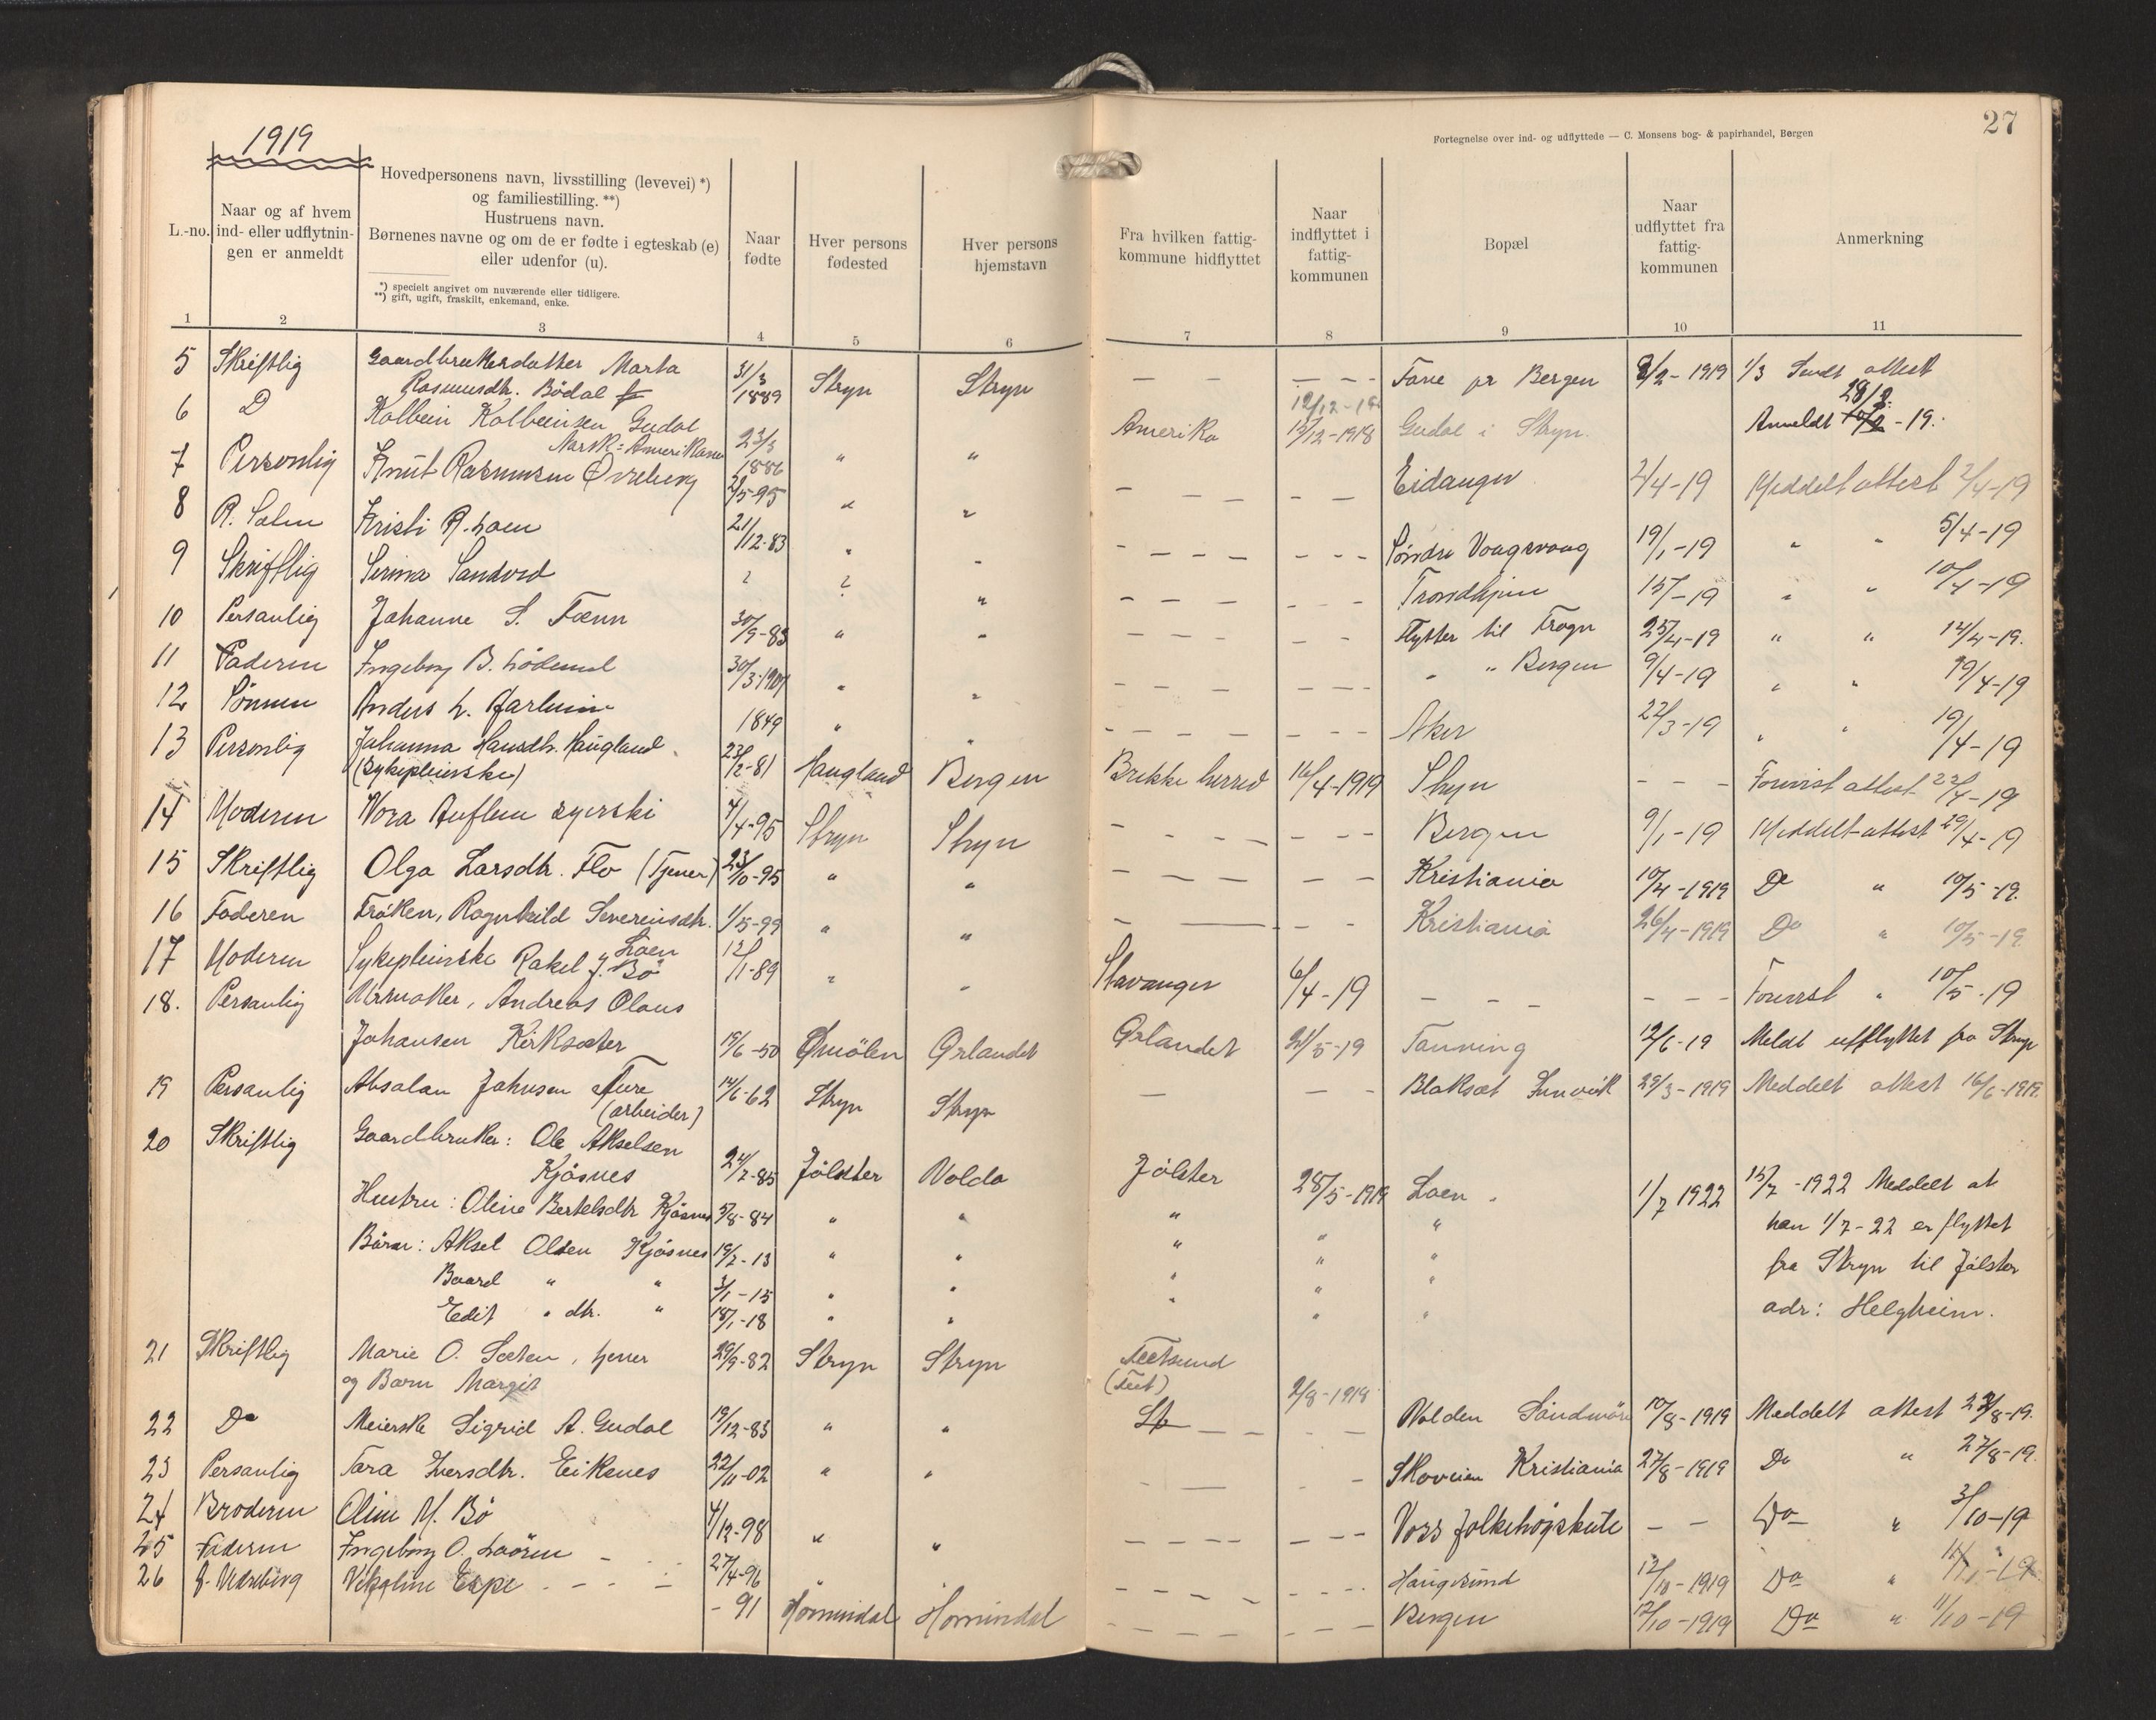 1919
27
Fortegnelse over ind- og udflyttede — C. Monsens bog- & papirhandel, Bergen
L.-no.
Naar og af hvem
ind- eller udflytnin-
gen er anmeldt
Hovedpersonens navn, livsstilling (levevei) *)
og familiestilling. **)
Hustruens navn.
Børnenes navne og om de er fødte i egteskab (e)
eller udenfor (u).
*) specielt angivet om nuværende eller tidligere.
**) gift, ugift, fraskilt, enkemand, enke.
Naar
fødte
Hver persons
fødested
Hver persons
hjemstavn
Fra hvilken fattig-
kommune hidflyttet
Naar
indflyttet i
fattig-
kommunen
Bopæl
Naar
udflyttet fra
fattig-
kommunen
Anmerkning
1 2 3 4 5 6 7 8 9 10 11
5 Skriftlig Gaardbrukerdatter Marta
Rasmusdtr. Bödal 31/3 1889 Stryn Stryn — — — — — Fane pr Bergen 8/2-1919 1/3 Sendt attest
6 D Kolbein Kolbeinsen Gudal
Norsk-Amerikaner 23/3 1886 " " Amerika 12/12-18 13/12-1918 Gudal i Stryn. Anmeldt 28/2-19.
7 Personlig Knut Rasmusen Øvreberg 2/5-95 " " — — — — — Eidanger 2/4-19 Meddelt attest 2/4-19
8 R. Loen Kristi R. Loen 21/12-83 " " — — — — — — — Søndre Vangsvang 19/1-19 " " 5/4-19
9 Skriftlig Serina Sandvod ? ? " — — — — — — Trondhjem 15/-19 " " 10/4-19
10 Personlig Johanne S. Tænn 30/9-83 " " — — — — — — Flytter til Frogn 25/4-19 " " 14/4-19.
11 Faderen Ingeborg B. Lödemel 30/3-1901 " " — — — — — — " " Bergen 9/4-19 " " 19/4-19
12 Sønnen Anders L. Aarheim 1849 " " — — — — — — — Aker 22/3-19 " " 19/4-19
13 Personlig Johanna Hansdtr. Haugland
(Sykepleierske) 23/2-81 Haugland Bergen Brekke herred 16/4-1919 Stryn — — — Forevist attest 22/4-19
14 Moderen Nora Auflem syerski 4/4-95 Stryn Stryn — — — — — — — Bergen 9/1-19 Meddelt attest 29/4-19
15 Skriftlig Olga Larsdtr. Flo (Tjener) 23/10-95 " " — — — — — — Kristiania 10/4-1919 Do " 10/5-19.
16 Faderen Fröken, Ragnhild Severinsdtr.
Loen 1/5-99 " " — — — — Kristiania 26/4-1919 Do " 10/5-19
17 Moderen Sykepleierske Rakel J. Bö 12/1-89 " " Stavanger 6/4-19 — — — — — — Forevist " 10/5-19
18. Personlig Urmaker, Andreas Olaus
Johansen Kirksæter 15/6-50 Ørlandet Ørlandet 21/5-19 Tonning 12/6-19 Meldt utflyttet fra Stryn
19 Personlig Absalon Johnsen Ture
(arbeider) 14/6-62 Stryn Stryn — — — Blaksæt Innvik 29/3-1919 Meddelt attest 16/6-1919.
20 Skriftlig Gaardbruker: Ole Akselsen
Kjösnes 24/7-85 Jölster Volda Jölster 28/5-1919 Loen. 1/7 1922 15/7-1922 Meddelt at
Hustru: Oline Bertelsdtr Kjösnes 5/8-84 " " " " " han 1/7-22 er flyttet
Börn: Aksel Olsen Kjösnes 19/7-13 " " " " " fra Stryn til Jölster
Baard " " 3/1-15 " " " " " adr: Helgheim.
Edit " dtr. " 18/1-18 " " " " "
21 Skriftlig Marie O. Sæten, tjener 29/9-82 Stryn Stryn Fetsund
og Barn Margit (Fet) 2/8-1918
22 Do Meierske Sigrid A. Gudal 19/12-83 " " — — — — Volden Söndmöre 10/8-1919 Meddelt attest 22/8-19.
23 Personlig Tora Iversdtr. Eikenes 22/11-02 " " — — — Skoveien Kristiania 27/8-1919 Do " 27/8-19.
24 Broderen Oline M. Bö 4/12-98 " " — — — — — — — Voss folkehögskule — — Do " 3/10-19
25 Faderen Ingeborg O. Loören 27/4-96 " — — — — — — — — Haugesund 12/10-1919 Do " 11/-19
26 Espe -91 Hornindal Hornindal — — — — — — — Bergen 12/10-1919 Do " 11/10-19